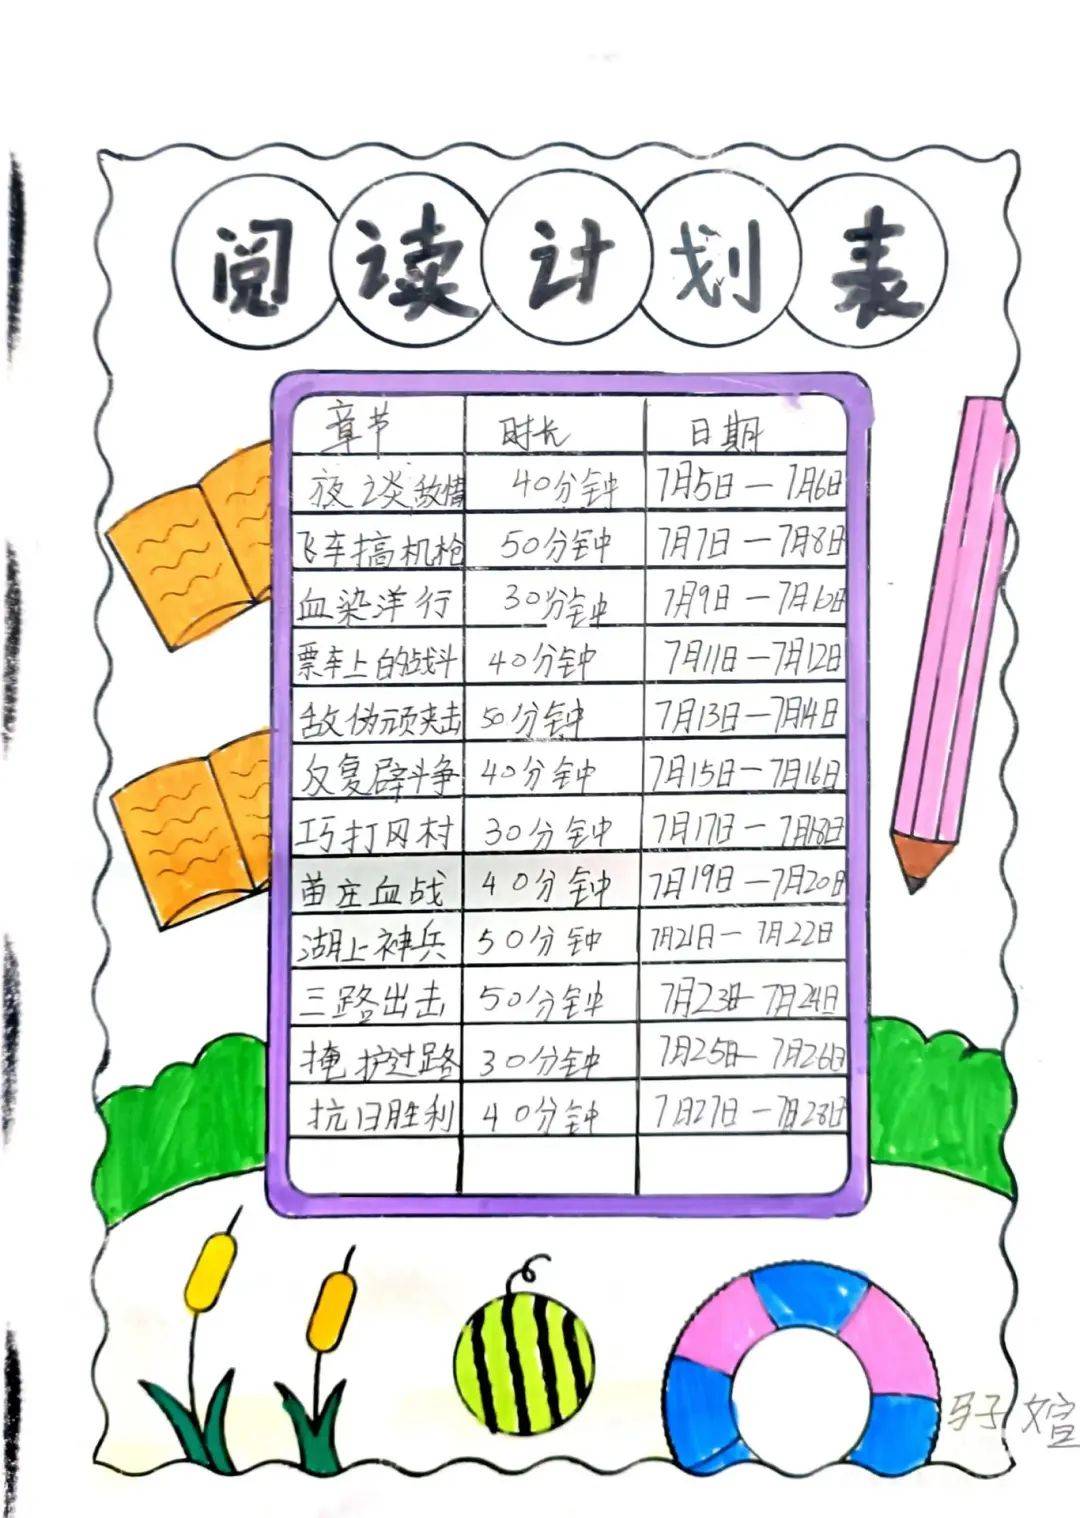 阅读计划表
章节 时长 日期
夜谈敌情 40分钟 7月5日—7月6日
飞车搞机枪 50分钟 7月7日—7月8日
血染洋行 30分钟 7月9日—7月10日
票车上的战斗 40分钟 7月11日—7月12日
敌伪顽夹击 50分钟 7月13日—7月14日
反复辟斗争 40分钟 7月15日—7月16日
巧打冈村 30分钟 7月17日—7月18日
苗庄血战 40分钟 7月19日—7月20日
湖上神兵 50分钟 7月21日—7月22日
三路出击 50分钟 7月23日—7月24日
掩护过路 30分钟 7月25日—7月26日
抗日胜利 40分钟 7月27日—7月28日
子媗